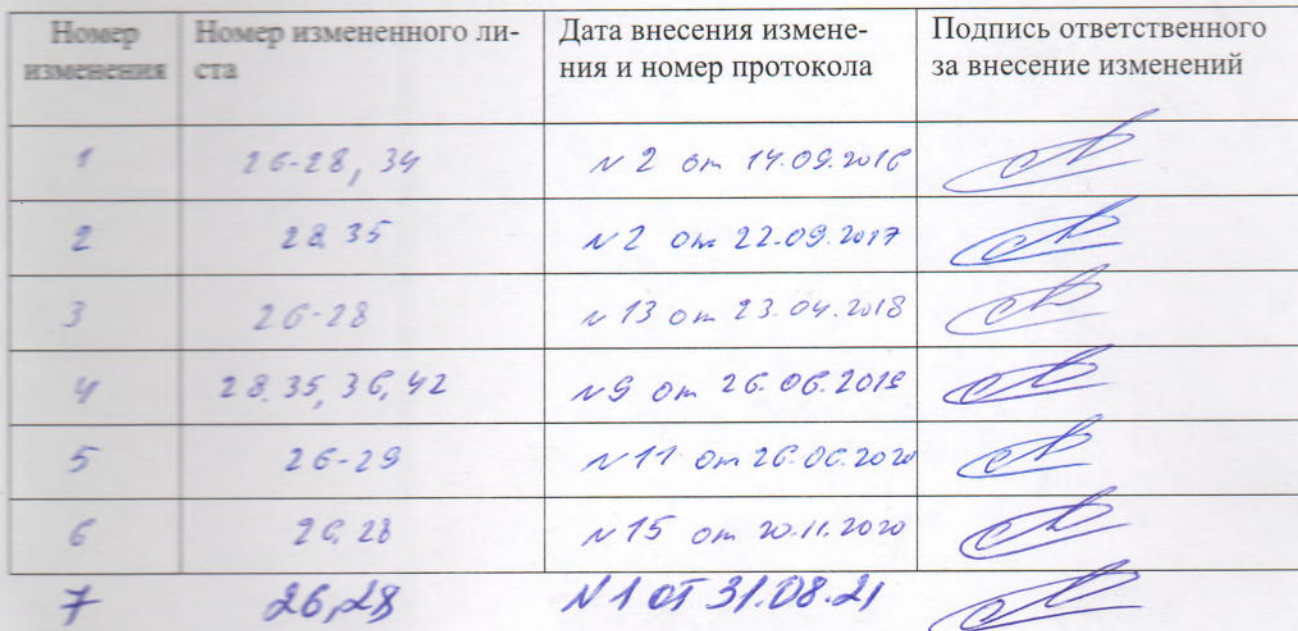 Номер изменения
Номер измененного ли-
ста
Дата внесения измене-
ния и номер протокола
Подпись ответственного
за внесение изменений
1 26-28, 34 N 2 от 14.09.2016
2 28, 35 N 2 от 22.09.2017
3 26-28 N 13 от 23.04.2018
4 28, 35, 36, 42 N 9 от 26.06.2019
5 26-29 N 11 от 26.06.2020
6 26, 28 N 15 от 20.11.2020
7 26,28 N 1 от 31.08.21